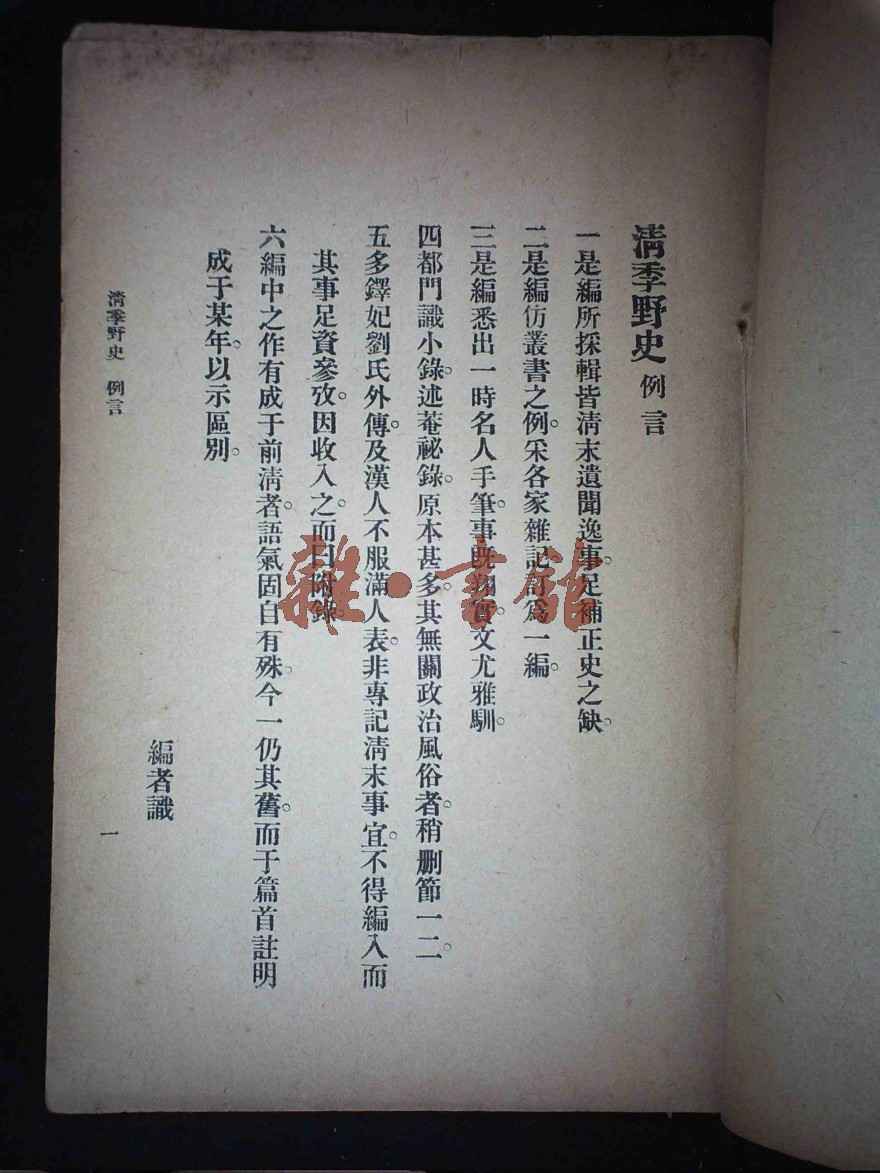 清季野史 例言
一是編所採輯皆清末遺聞逸事。足補正史之缺。
二是編仿叢書之例。采各家雜記訂爲一編。
三是編悉出一時名人手筆。事既翔實。文尤雅馴。
四都門識小錄。述菴祕錄。原本甚多。其無關政治風俗者。稍删節一二。
五多鐸妃劉氏外傳。及漢人不服滿人表。非專記清末事宜。不得編入。而
其事足資參攷。因收入之。而曰附錄。
六編中之作有成于前清者。語氣固自有殊。今一仍其舊。而于篇首註明
成于某年。以示區別。
編者識
清季野史 例言
一
雜·書館